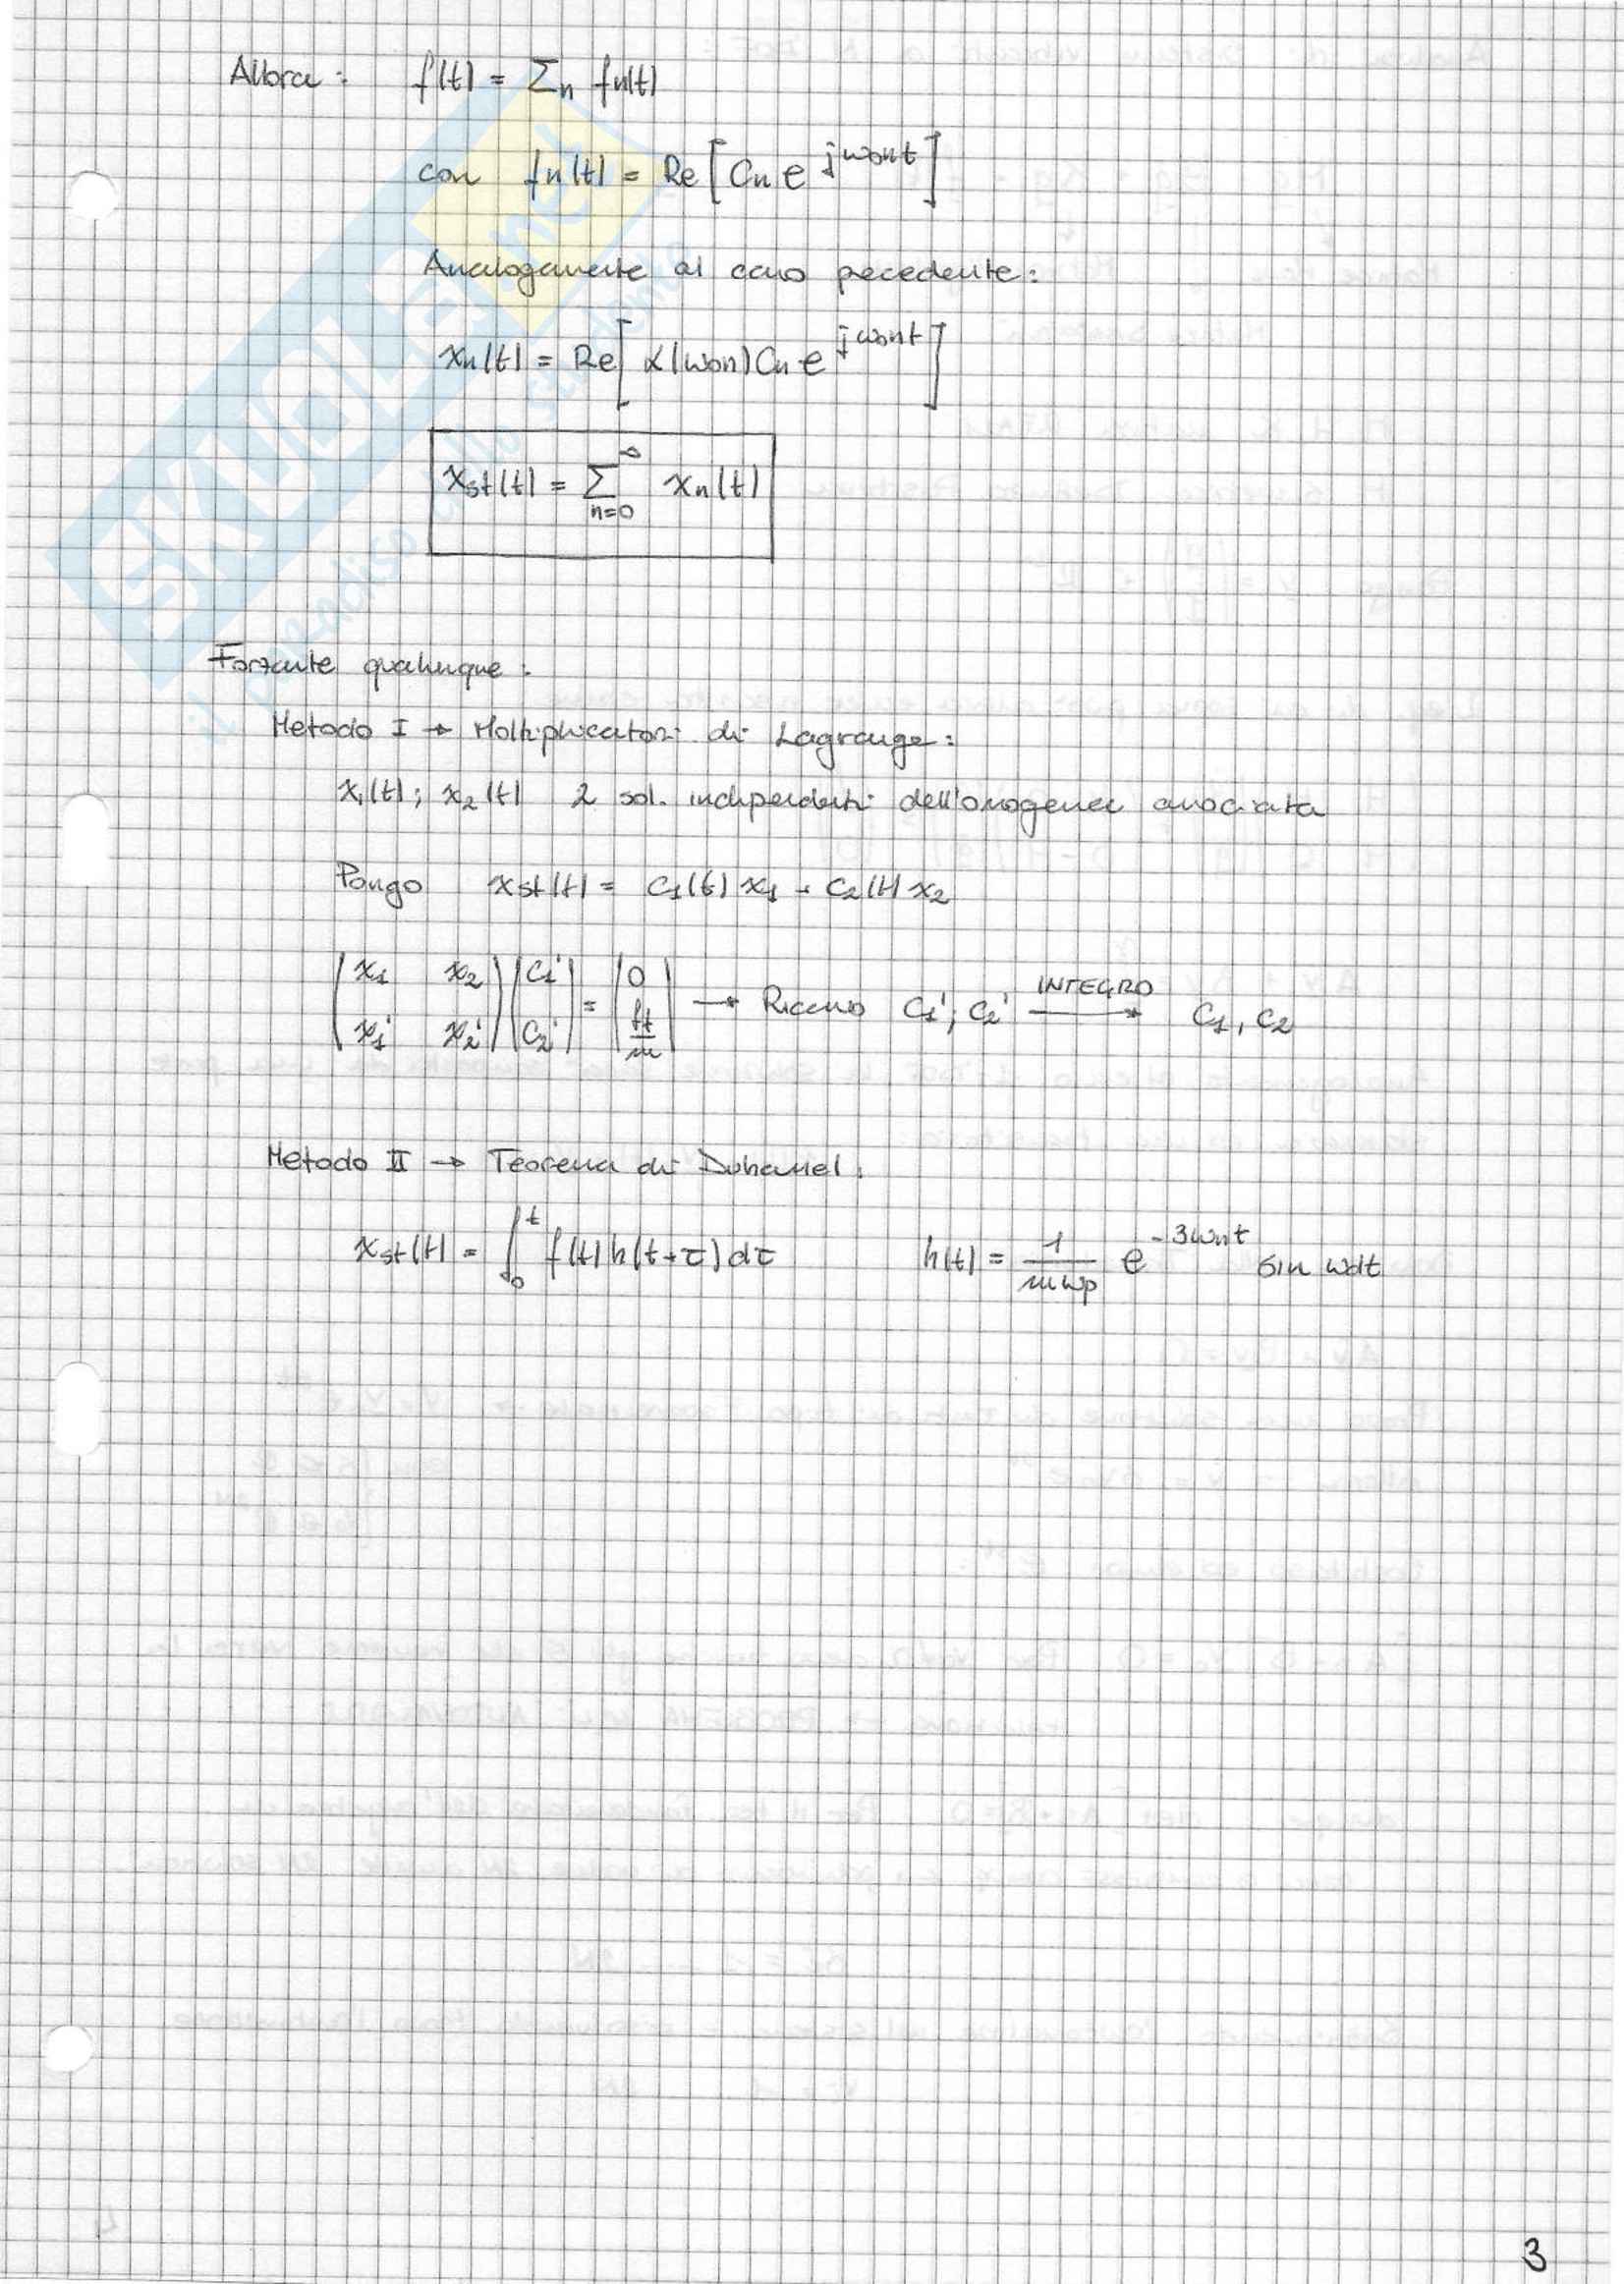 Allora: f(t) = Σn fn(t)
con fn(t) = Re[Cn e^jω0nt]
Analogamente al caso precedente:
xn(t) = Re[α(ω0n) Cn e^jω0nt]
xst(t) = Σ n=0 ∞ xn(t)
Forzante qualunque:
Metodo I → Moltiplicatori di Lagrange:
x1(t); x2(t) 2 sol. indipendenti dell'omogenea associata
Pongo xst(t) = c1(t) x1 + c2(t) x2
(x1 x2) (c1') = (0) → Ricavo c1'; c2' INTEGRO → c1, c2
(x1' x2') (c2') (ft/m)
Metodo II → Teorema di Duhamel:
xst(t) = ∫0^t f(t) h(t+τ) dτ h(t) = 1/mωp e^-3ωnt sin ωdt
3
SKUOLA.net
il paradiso dello studente